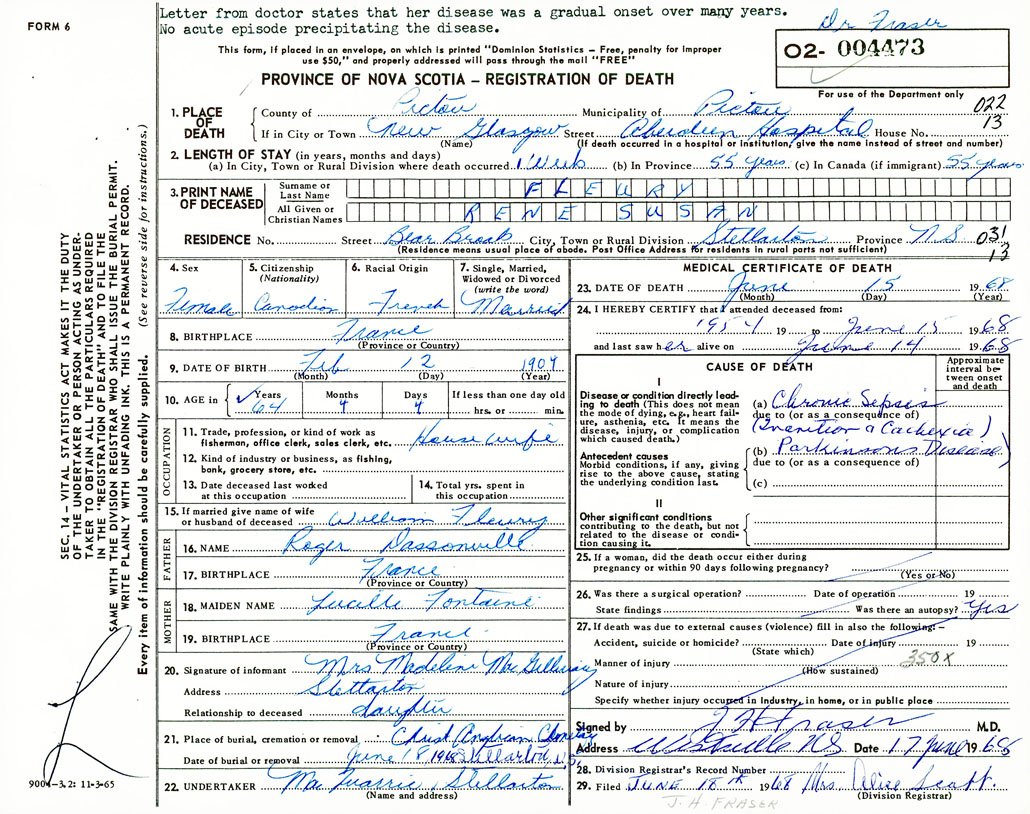 FORM 6
Letter from doctor states that her disease was a gradual onset over many years.
No acute episode precipitating the disease.
Dr Fraser
This form, if placed in an envelope, on which is printed "Dominion Statistics – Free, penalty for improper
use $50," and properly addressed will pass through the mail "FREE"
O2- 004473
PROVINCE OF NOVA SCOTIA – REGISTRATION OF DEATH
For use of the Department only
022
13
1. PLACE OF DEATH
County of Pictou Municipality of Pictou
If in City or Town New Glasgow Street Aberdeen Hospital House No.
(Name) (If death occurred in a hospital or institution, give the name instead of street and number)
2. LENGTH OF STAY (in years, months and days)
(a) In City, Town or Rural Division where death occurred 1 Week (b) In Province 55 years (c) In Canada (if immigrant) 55 years
3. PRINT NAME OF DECEASED
Surname or Last Name FLEURY
All Given or Christian Names RENE SUSAN
RESIDENCE No. Street Bear Brook City, Town or Rural Division Stellarton Province N S
031
13
(Residence means usual place of abode. Post Office Address for residents in rural parts not sufficient)
4. Sex
Female
5. Citizenship
(Nationality)
Canadian
6. Racial Origin
French
7. Single, Married, Widowed or Divorced
(write the word)
Married
8. BIRTHPLACE France
(Province or Country)
9. DATE OF BIRTH Feb 12 1904
(Month) (Day) (Year)
10. AGE in Years 64 Months 4 Days 4 If less than one day old
hrs. or min.
OCCUPATION
11. Trade, profession, or kind of work as
fisherman, office clerk, sales clerk, etc. House wife
12. Kind of industry or business, as fishing,
bank, grocery store, etc.
13. Date deceased last worked
at this occupation
14. Total yrs. spent in
this occupation
15. If married give name of wife
or husband of deceased William Fleury
FATHER
16. NAME Roger Dassonville
17. BIRTHPLACE France
(Province or Country)
MOTHER
18. MAIDEN NAME Lucille Fontaine
19. BIRTHPLACE France
(Province or Country)
20. Signature of informant Mrs Madeline MacGillivray
Address Stellarton
Relationship to deceased daughter
21. Place of burial, cremation or removal Christ Anglican
Date of burial or removal June 18 1968 Stellarton, N.S.
22. UNDERTAKER MacQuarrie Stellarton
(Name and address)
MEDICAL CERTIFICATE OF DEATH
23. DATE OF DEATH June 15 1968
(Month) (Day) (Year)
24. I HEREBY CERTIFY that I attended deceased from:
1954 19 to June 15 1968
and last saw her alive on June 14 1968
CAUSE OF DEATH
Approximate interval between onset and death
I
Disease or condition directly leading to death (This does not mean
the mode of dying, e.g., heart failure, asthenia, etc. It means the
disease, injury, or complication
which caused death.)
(a) Chronic Sepsis
due to (or as a consequence of)
(Inanition & Cachexia)
Antecedent causes
Morbid conditions, if any, giving
rise to the above cause, stating
the underlying condition last.
(b) Parkinsons Disease
due to (or as a consequence of)
(c)
II
Other significant conditions
contributing to the death, but not
related to the disease or condition causing it.
25. If a woman, did the death occur either during
pregnancy or within 90 days following pregnancy?
(Yes or No)
26. Was there a surgical operation? Date of operation 19
State findings Was there an autopsy? Yes
27. If death was due to external causes (violence) fill in also the following:–
Accident, suicide or homicide? Date of injury 19
(State which)
Manner of injury 350X
(How sustained)
Nature of injury
Specify whether injury occurred in Industry, in home, or in public place
Signed by J H Fraser M.D.
Address Westville N.S. Date 17 June 1968
28. Division Registrar's Record Number
29. Filed JUNE 18th 1968 Mrs. Alice Scott.
(Division Registrar)
J. H. FRASER
SEC. 14 – VITAL STATISTICS ACT MAKES IT THE DUTY
OF THE UNDERTAKER OR PERSON ACTING AS UNDER-
TAKER TO OBTAIN ALL THE PARTICULARS REQUIRED
IN THE "REGISTRATION OF DEATH" AND TO FILE THE
SAME WITH THE DIVISION REGISTRAR WHO SHALL ISSUE THE BURIAL PERMIT.
WRITE PLAINLY WITH UNFADING INK. THIS IS A PERMANENT RECORD.
Every item of information should be carefully supplied. (See reverse side for instructions.)
9004–3.2: 11-3-65